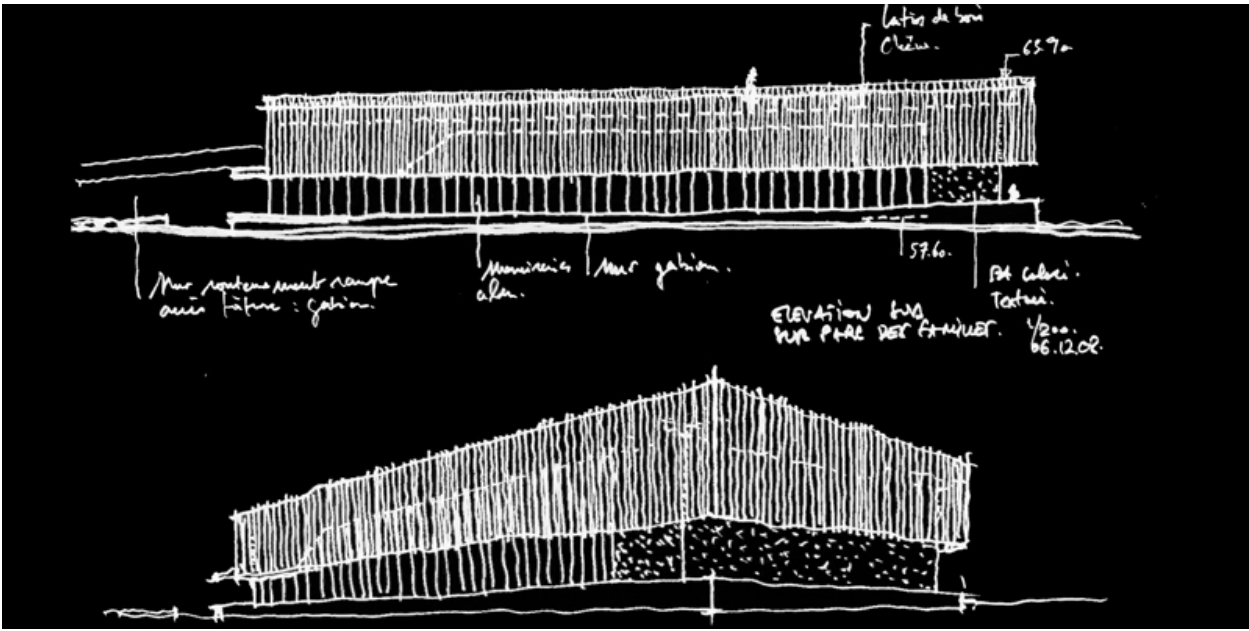 Lattes de bois
Chêne.
65.90
Mur soutenement rampe
avec toiture : gabion.
Menuiseries
alu.
Mur gabion.
57.60.
BA coloré.
Texturé.
ELEVATION SUD
SUR PARC DES FAMILLES. 1/200.
06.12.08.